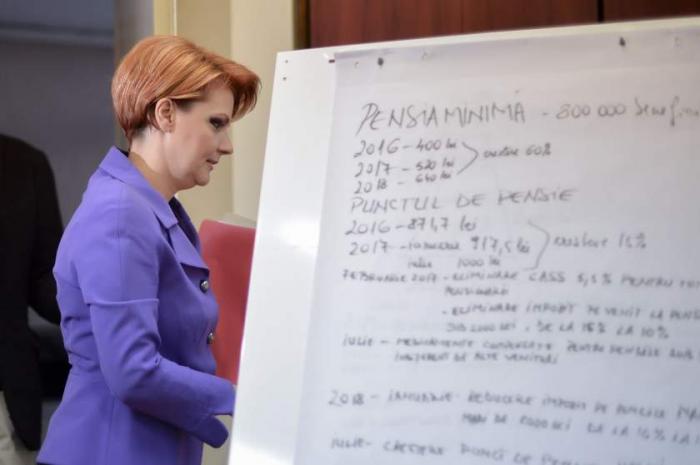 PENSIA MINIMĂ - 800 000
2016 - 400 lei
2017 - 520 lei
2018 - 640 lei
creștere 60%
PUNCTUL DE PENSIE
2016 - 871,7 lei
2017 - ianuarie 917,5 lei
iulie 1000 lei
creștere 15%
FEBRUARIE 2017 - ELIMINARE CASS 5,5% PENTRU
PENSIONARI
- ELIMINARE IMPOZIT PE VENIT LA
SUB 2000 LEI, DE LA 16% LA 10%
IULIE - MEDICAMENTE COMPENSATE PENTRU PENSIILE SUB
INDIFERENT DE ALTE VENITURI
2018 - IANUARIE - REDUCERE IMPOZIT PE
MARI DE 2000 LEI DE LA 16% LA
IULIE - CREȘTERE PUNCT DE